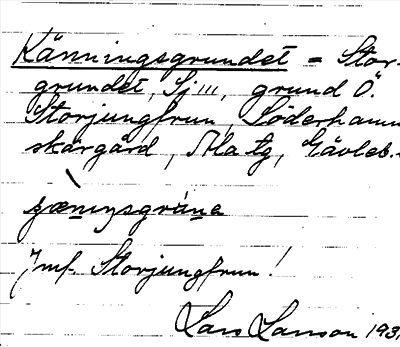 Känningsgrundet = Stor-
grundet, Sj III, grund Ö.
Storjungfrun, Söderhamn
skärgård, Ala tg, Gävleb.
Jmf. Storjungfrun!
Lars Larsson 193